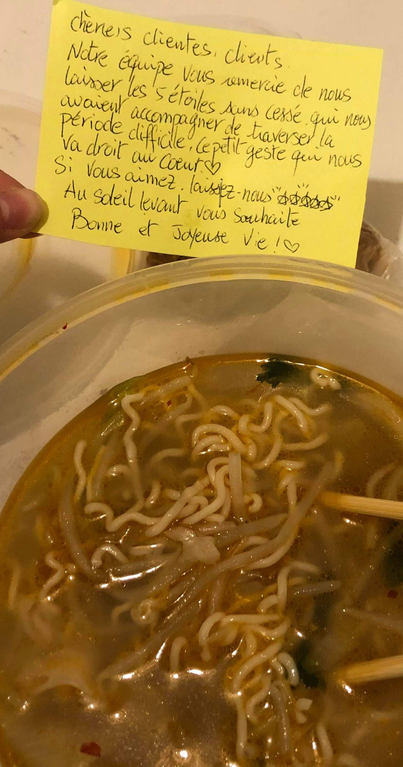 chèreis clientes, clients.
Notre équipe vous remercie de nous
laisser les 5 étoiles sans cessé qui nous
avaient accompagner de traverser la
période difficile. Ce petit geste que nous
va droit au Coeur♡
Si vous aimez, laissez-nous "☆☆☆☆☆"
Au soleil levant vous souhaite
Bonne et Joyeuse Vie !♡